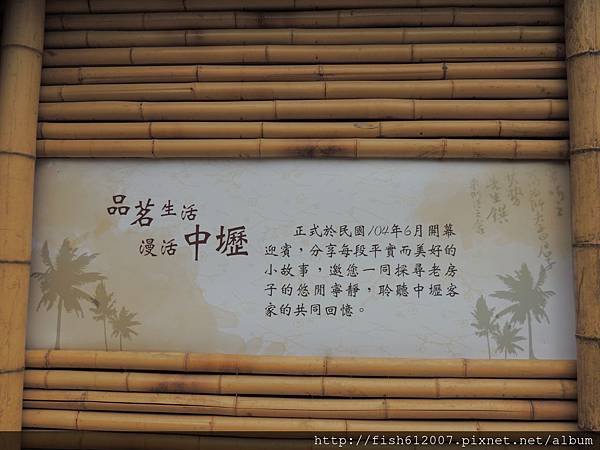 品茗生活
漫活中壢
正式於民國104年6月開幕
迎賓，分享每段平實而美好的
小故事，邀您一同探尋老房
子的悠閒寧靜，聆聽中壢客
家的共同回憶。
http://fish612007.pixnet.net/album